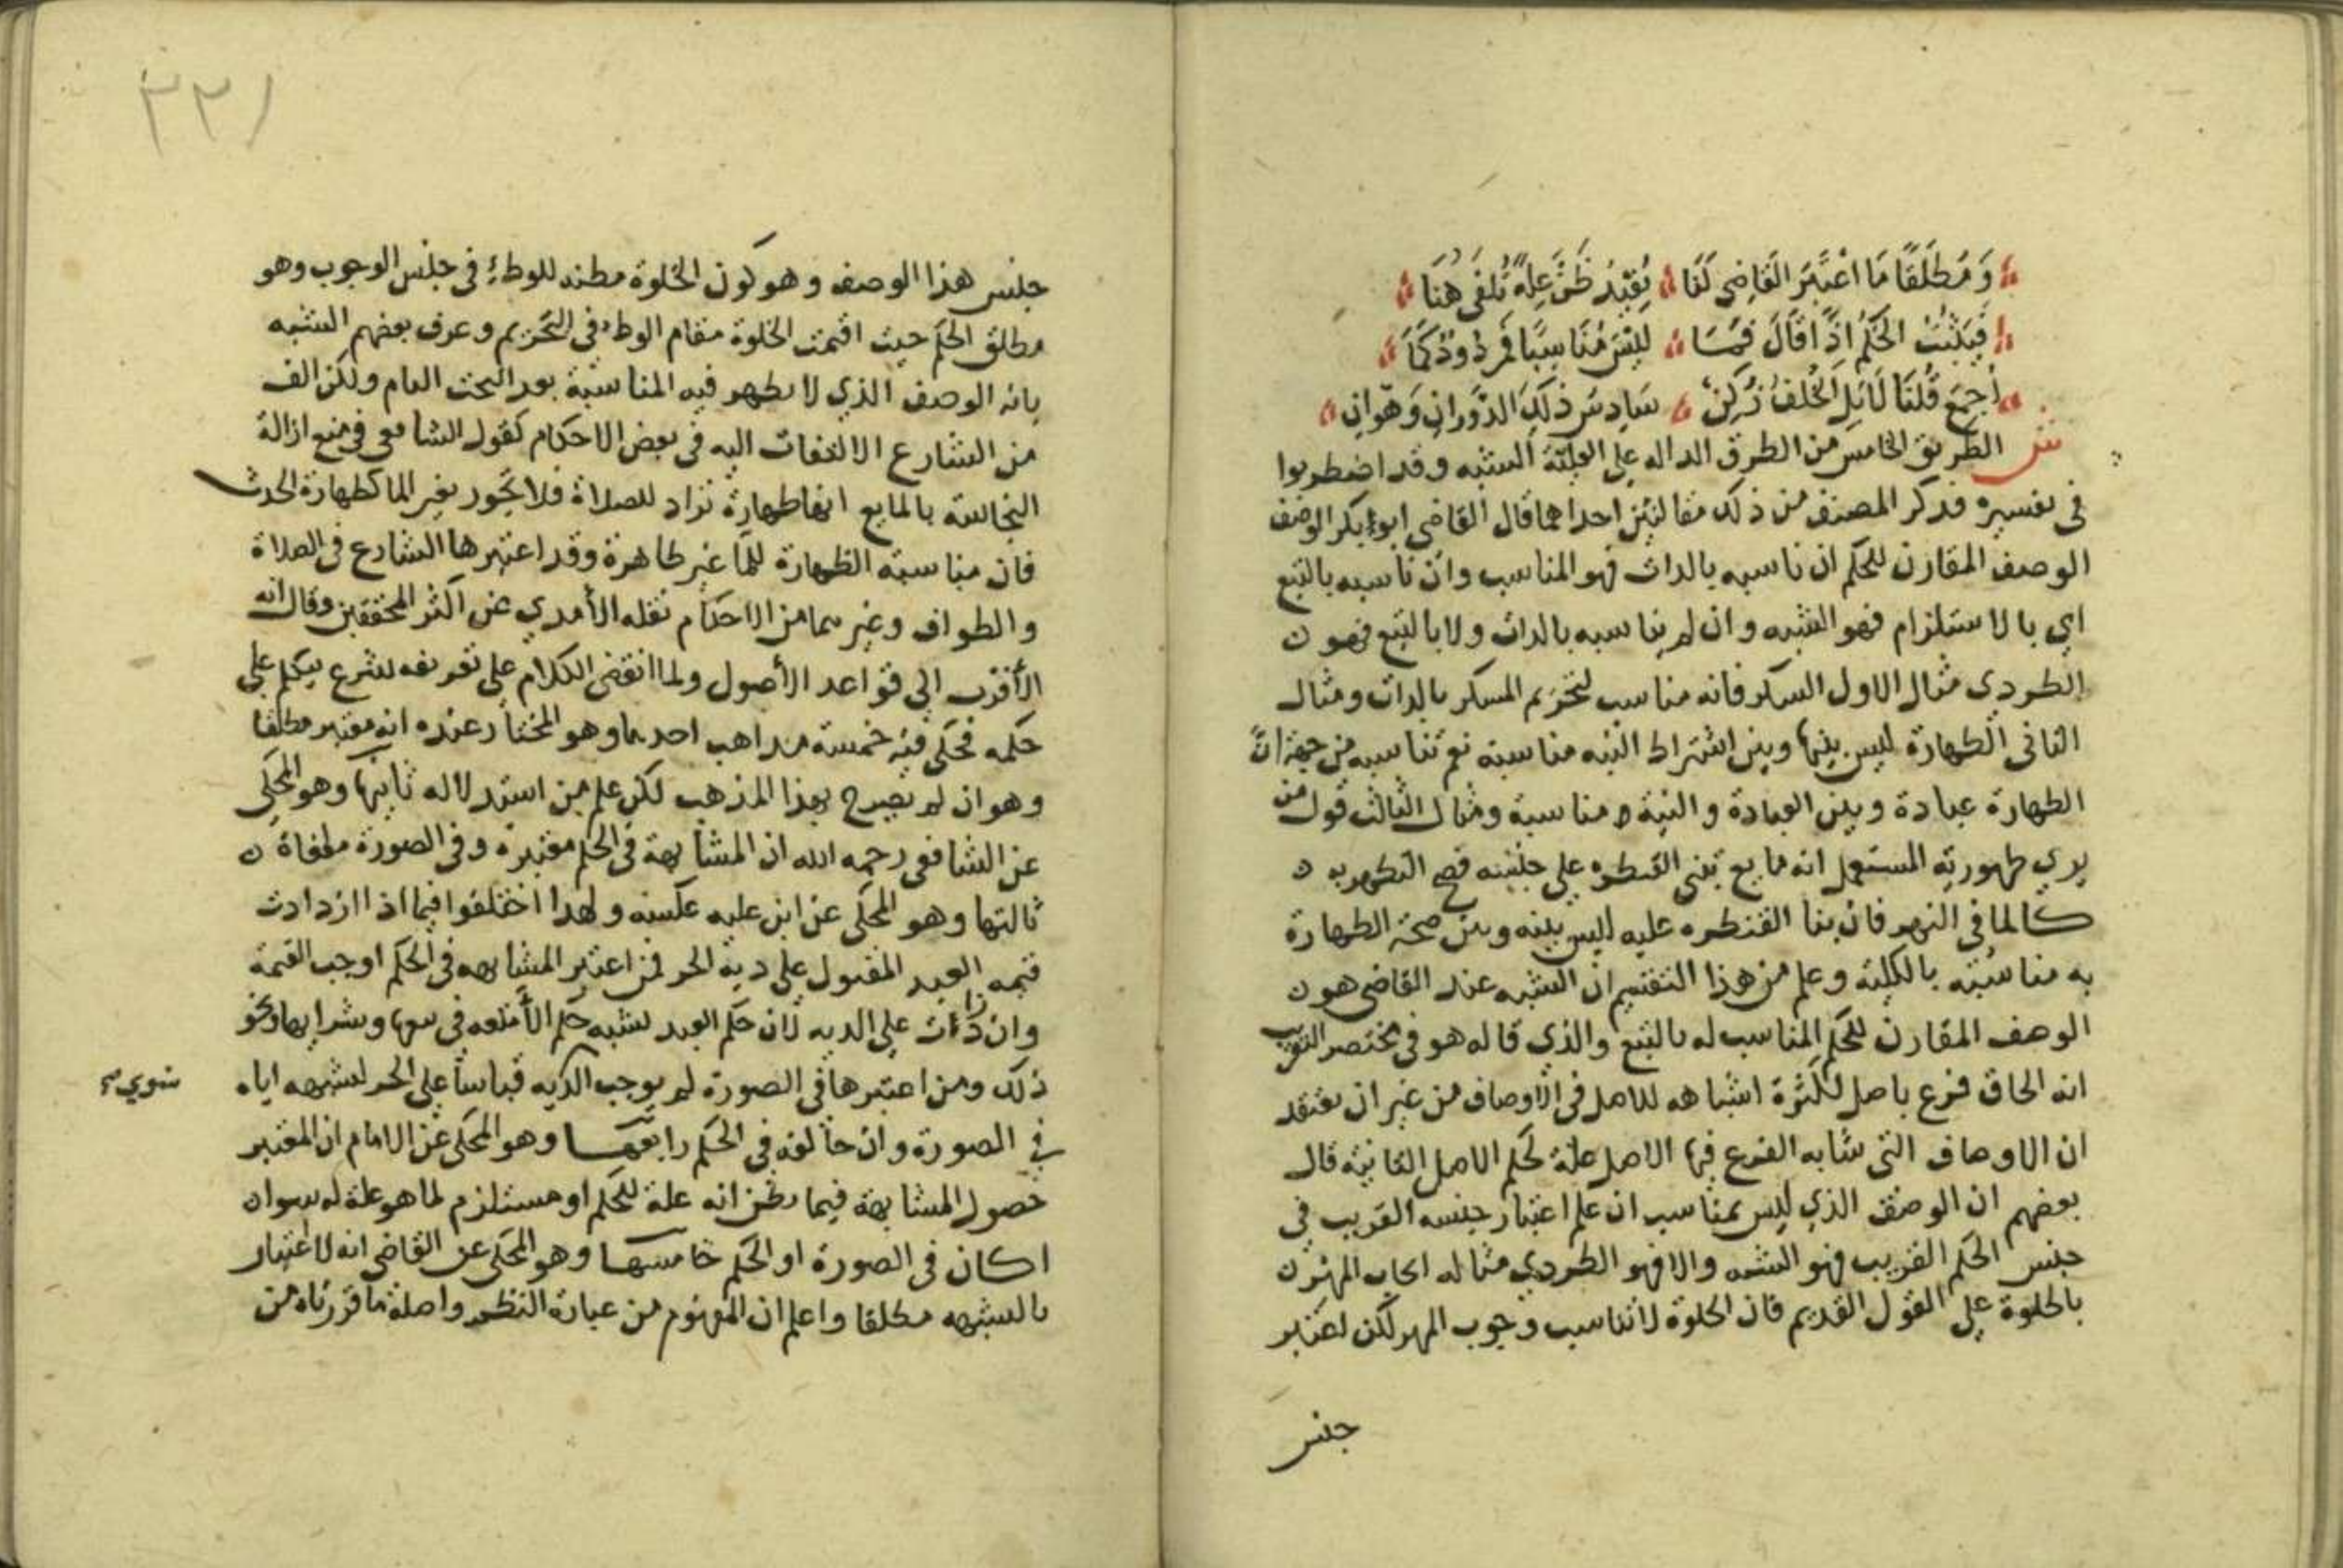 وَمُطلَقًا مَا اعْتَبَرَ القَاضِي لَنَا يُفِيدُ ظَنَّ عِلةٍ تُلفَى هُنَا
فَيَثْبُتُ الحُكْمُ إِذًا قَالَ فَمَا لَيْسَ مُنَاسِبًا فَمَردُودٌ كَمَا
أجمعَ قُلنَا لَا بَلِ الخُلفُ زُكِنْ سَادِسُ ذَلِكَ الدَّوَرانِ وَهوَ انِ
ش الطريق الخامس من الطرق الداله علي العلية الشبه وقد اضطربوا
في تفسيره فذكر المصنف من ذلك مقالتين احداهما قال القاضي ابو بكر الوصف
الوصف المقارن للحكم ان ناسبه بالذات فهو المناسب وان ناسبه بالتبع
اي بالاستلزام فهو الشبه وان لم يناسبه بالذات ولا بالتبع فهو ن
الطردي مثال الاول السكر فانه مناسب لتحريم المسكر بالذات ومثال
الثاني الطهارة ليس بينها وبين اشتراط النيه مناسبة نعم تناسبه من جهة ان
الطهارة عبادة وبين العبادة والنية مناسبة ومثال الثالث قول من
يري طهورية المستعمل انه مايع تبني القنطره علي جنسه فصح التطهر به ن
كالما في النهر فان بنا القنطره عليه ليس بينه وبين صحة الطهارة
به مناسبته بالكلية وعلم من هذا التقسيم ان الشبه عند القاضي هو ن
الوصف المقارن للحكم المناسب له بالتبع والذي قاله هو في مختصر التقريب
انه الحاق فرع باصل لكثرة اشباهه للاصل في الاوصاف من غير ان يعتقد
ان الاوصاف التي شابه الفرع فيها الاصل علة لحكم الاصل الثانية قال
بعضهم ان الوصف الذي ليس بمناسب ان علم اعتبار جنسه القريب في
جنس الحكم القريب فهو الشبه والا فهو الطردي مثاله ايجاب المهر ن
بالخلوة علي القول القديم فان الخلوة لا تناسب وجوب المهر لكن اعتبر
جنس
٢٢١
جنس هذا الوصف وهو كون الخلوة مظنه للوطء في جنس الوجوب وهو
مطلق الحكم حيث اقيمت الخلوة مقام الوطء في التحريم وعرف بعضهم الشبه
بانه الوصف الذي لا يظهر فيه المناسبة بعد البحث التام ولكن الف
من الشارع الالتفات اليه في بعض الاحكام كقول الشافعي في منع ازالة
النجاسة بالمايع انها طهارة تراد للصلاة فلا تجوز بغير الما كطهارة الحدث
فان مناسبة الطهارة للما غير ظاهرة وقد اعتبرها الشارع في الصلاة
والطواف وغيرهما من الاحكام نقله الأمدي عن اكثر المحققين وقال انه
الأقرب الي قواعد الأصول ولما انقضي الكلام علي تعريفه شرع يتكلم علي
حكمه فحكي فيه خمسة مذاهب احدها وهو المختار عنده انه معتبر مطلقا
وهو ان لم يصرح بهذا المذهب لكن علم من استدلاله ثانيها وهو المحكي
عن الشافعي رحمه الله ان المشابهة في الحكم معتبرة وفي الصورة ملغاة ن
ثالثها وهو المحكي عن ابن عليه عكسه ولهذا اختلفوا فيما اذا ازدادت
قيمه العبد المقتول علي دية الحر فمن اعتبر المشابهه في الحكم اوجب القيمة
وان زادت علي الديه لان حكم العبد يشبه حكم الأمتعه في بيعها وشرايها ونحو
ذلك ومن اعتبرها في الصورة لم يوجب الديه قياسا علي الحر لشبهه اياه سوي
في الصورة وان خالفه في الحكم رابعها وهو المحكي عن الامام ان المعتبر
حصول المشابهة فيما يظن انه علة للحكم او مستلزم لما هو علة له سوا ن
اكان في الصورة او الحكم خامسها وهو المحكي عن القاضي انه لا اعتبار
بالشبهه مطلقا واعلم ان المفهوم من عبارة النظم واصله ما قررناه من